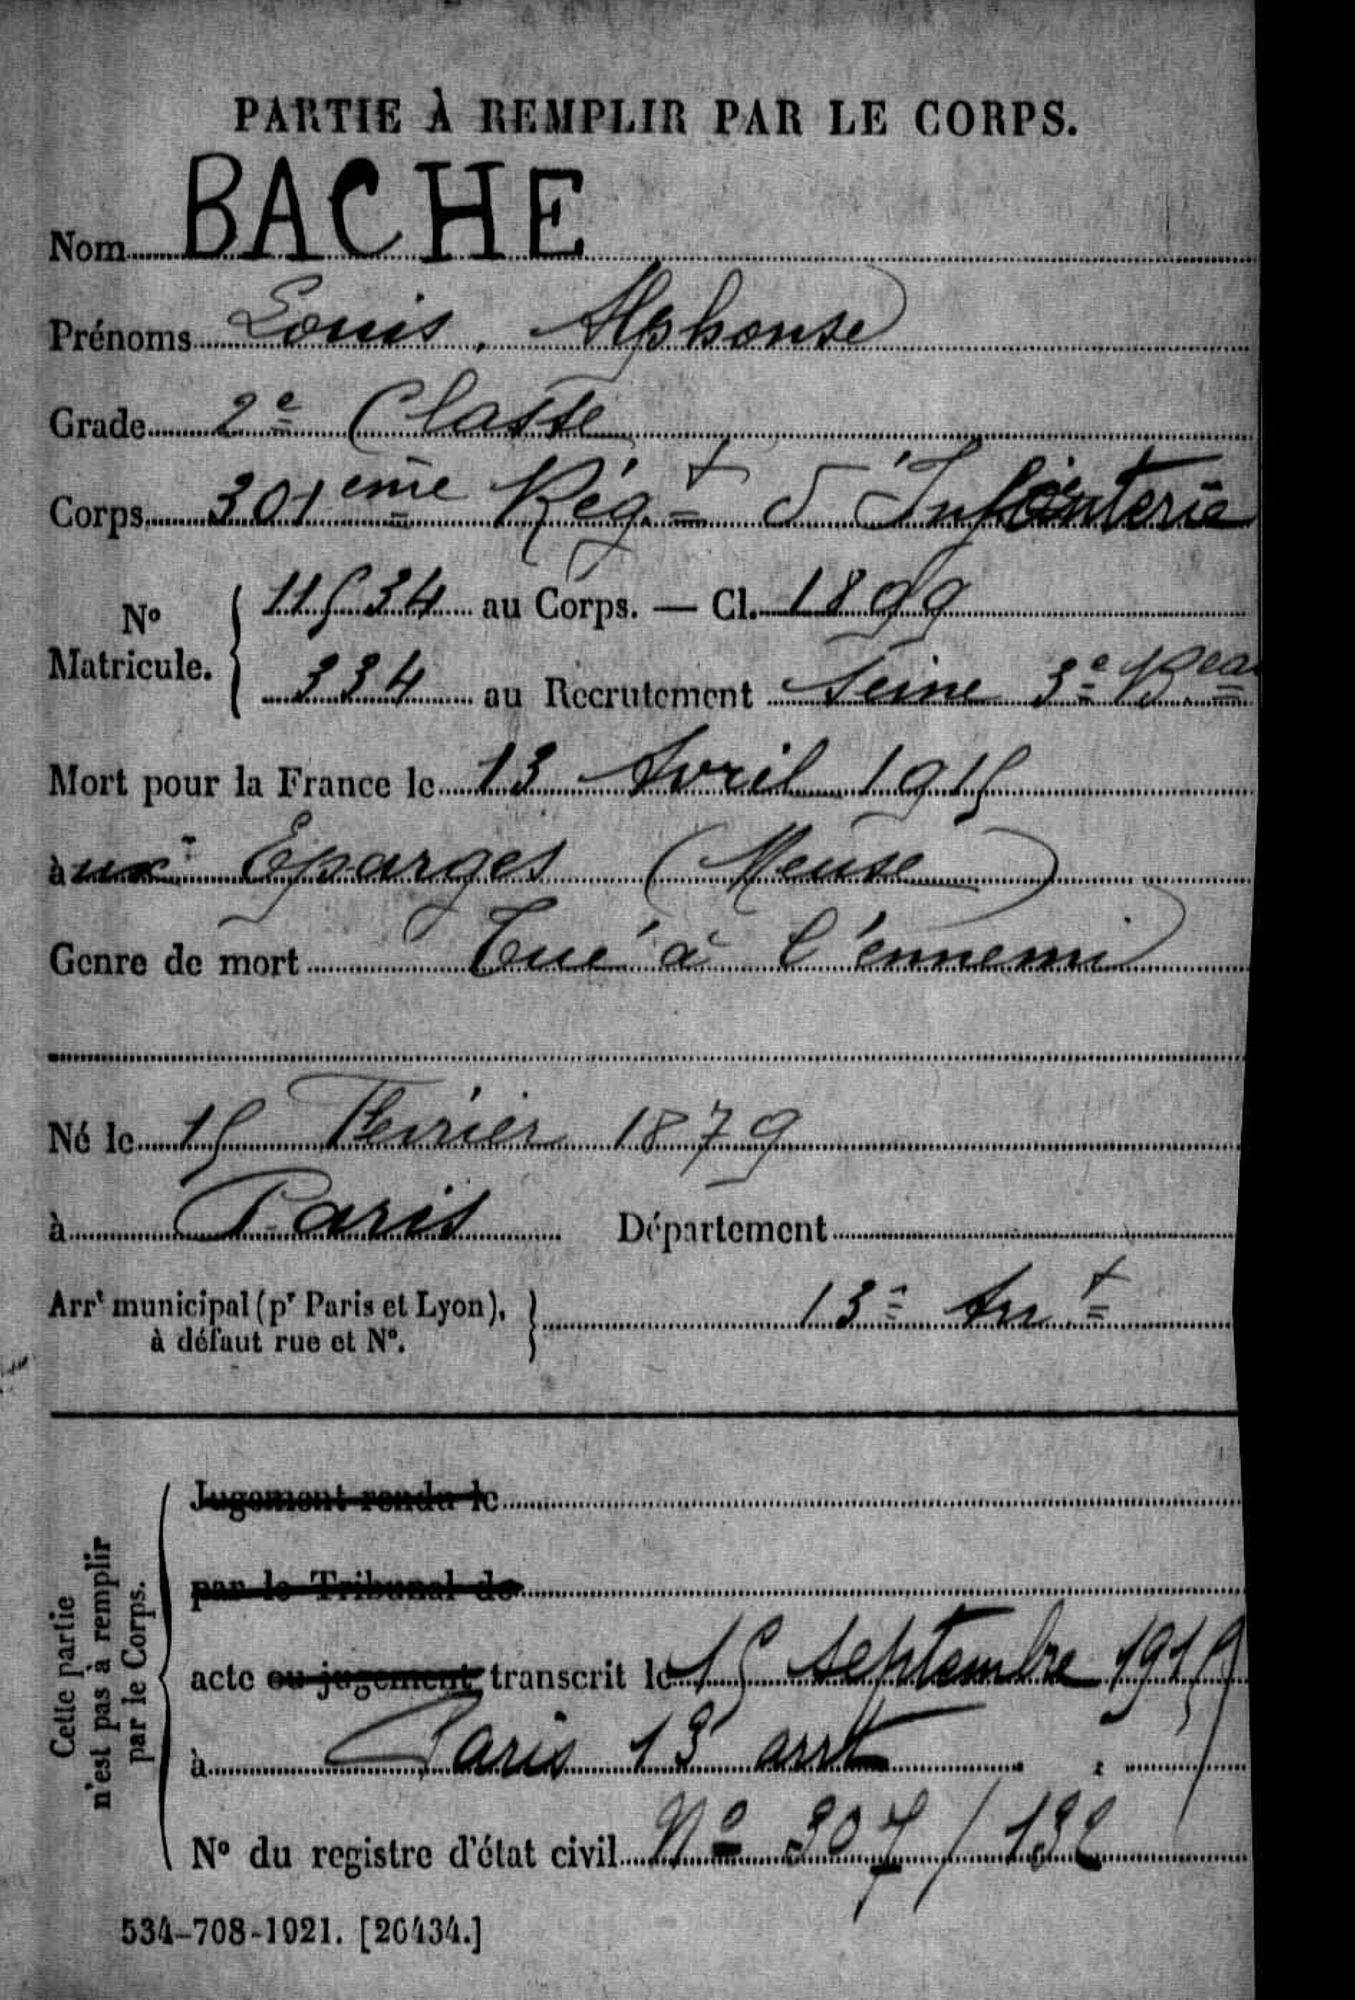 PARTIE À REMPLIR PAR LE CORPS.
Nom BACHE
Prénoms Louis, Alphonse
Grade 2e Classe
Corps 301ème Régt d'Infanterie
No Matricule. { 11534 au Corps. — Cl. 1899
334 au Recrutement Seine 3e Beau
Mort pour la France le 13 Avril 1915
aux Eparges (Meuse)
Genre de mort Tué à l'ennemi
Né le 15 Février 1879
à Paris Département
Arrt municipal (pr Paris et Lyon), à défaut rue et No. } 13e Arrt
Cette partie n'est pas à remplir par le Corps.
Jugement rendu le
par le Tribunal de
acte ou jugement transcrit le 15 septembre 1915
à Paris 13 arrt
No du registre d'état civil No 307/132
534-708-1921. [26434.]